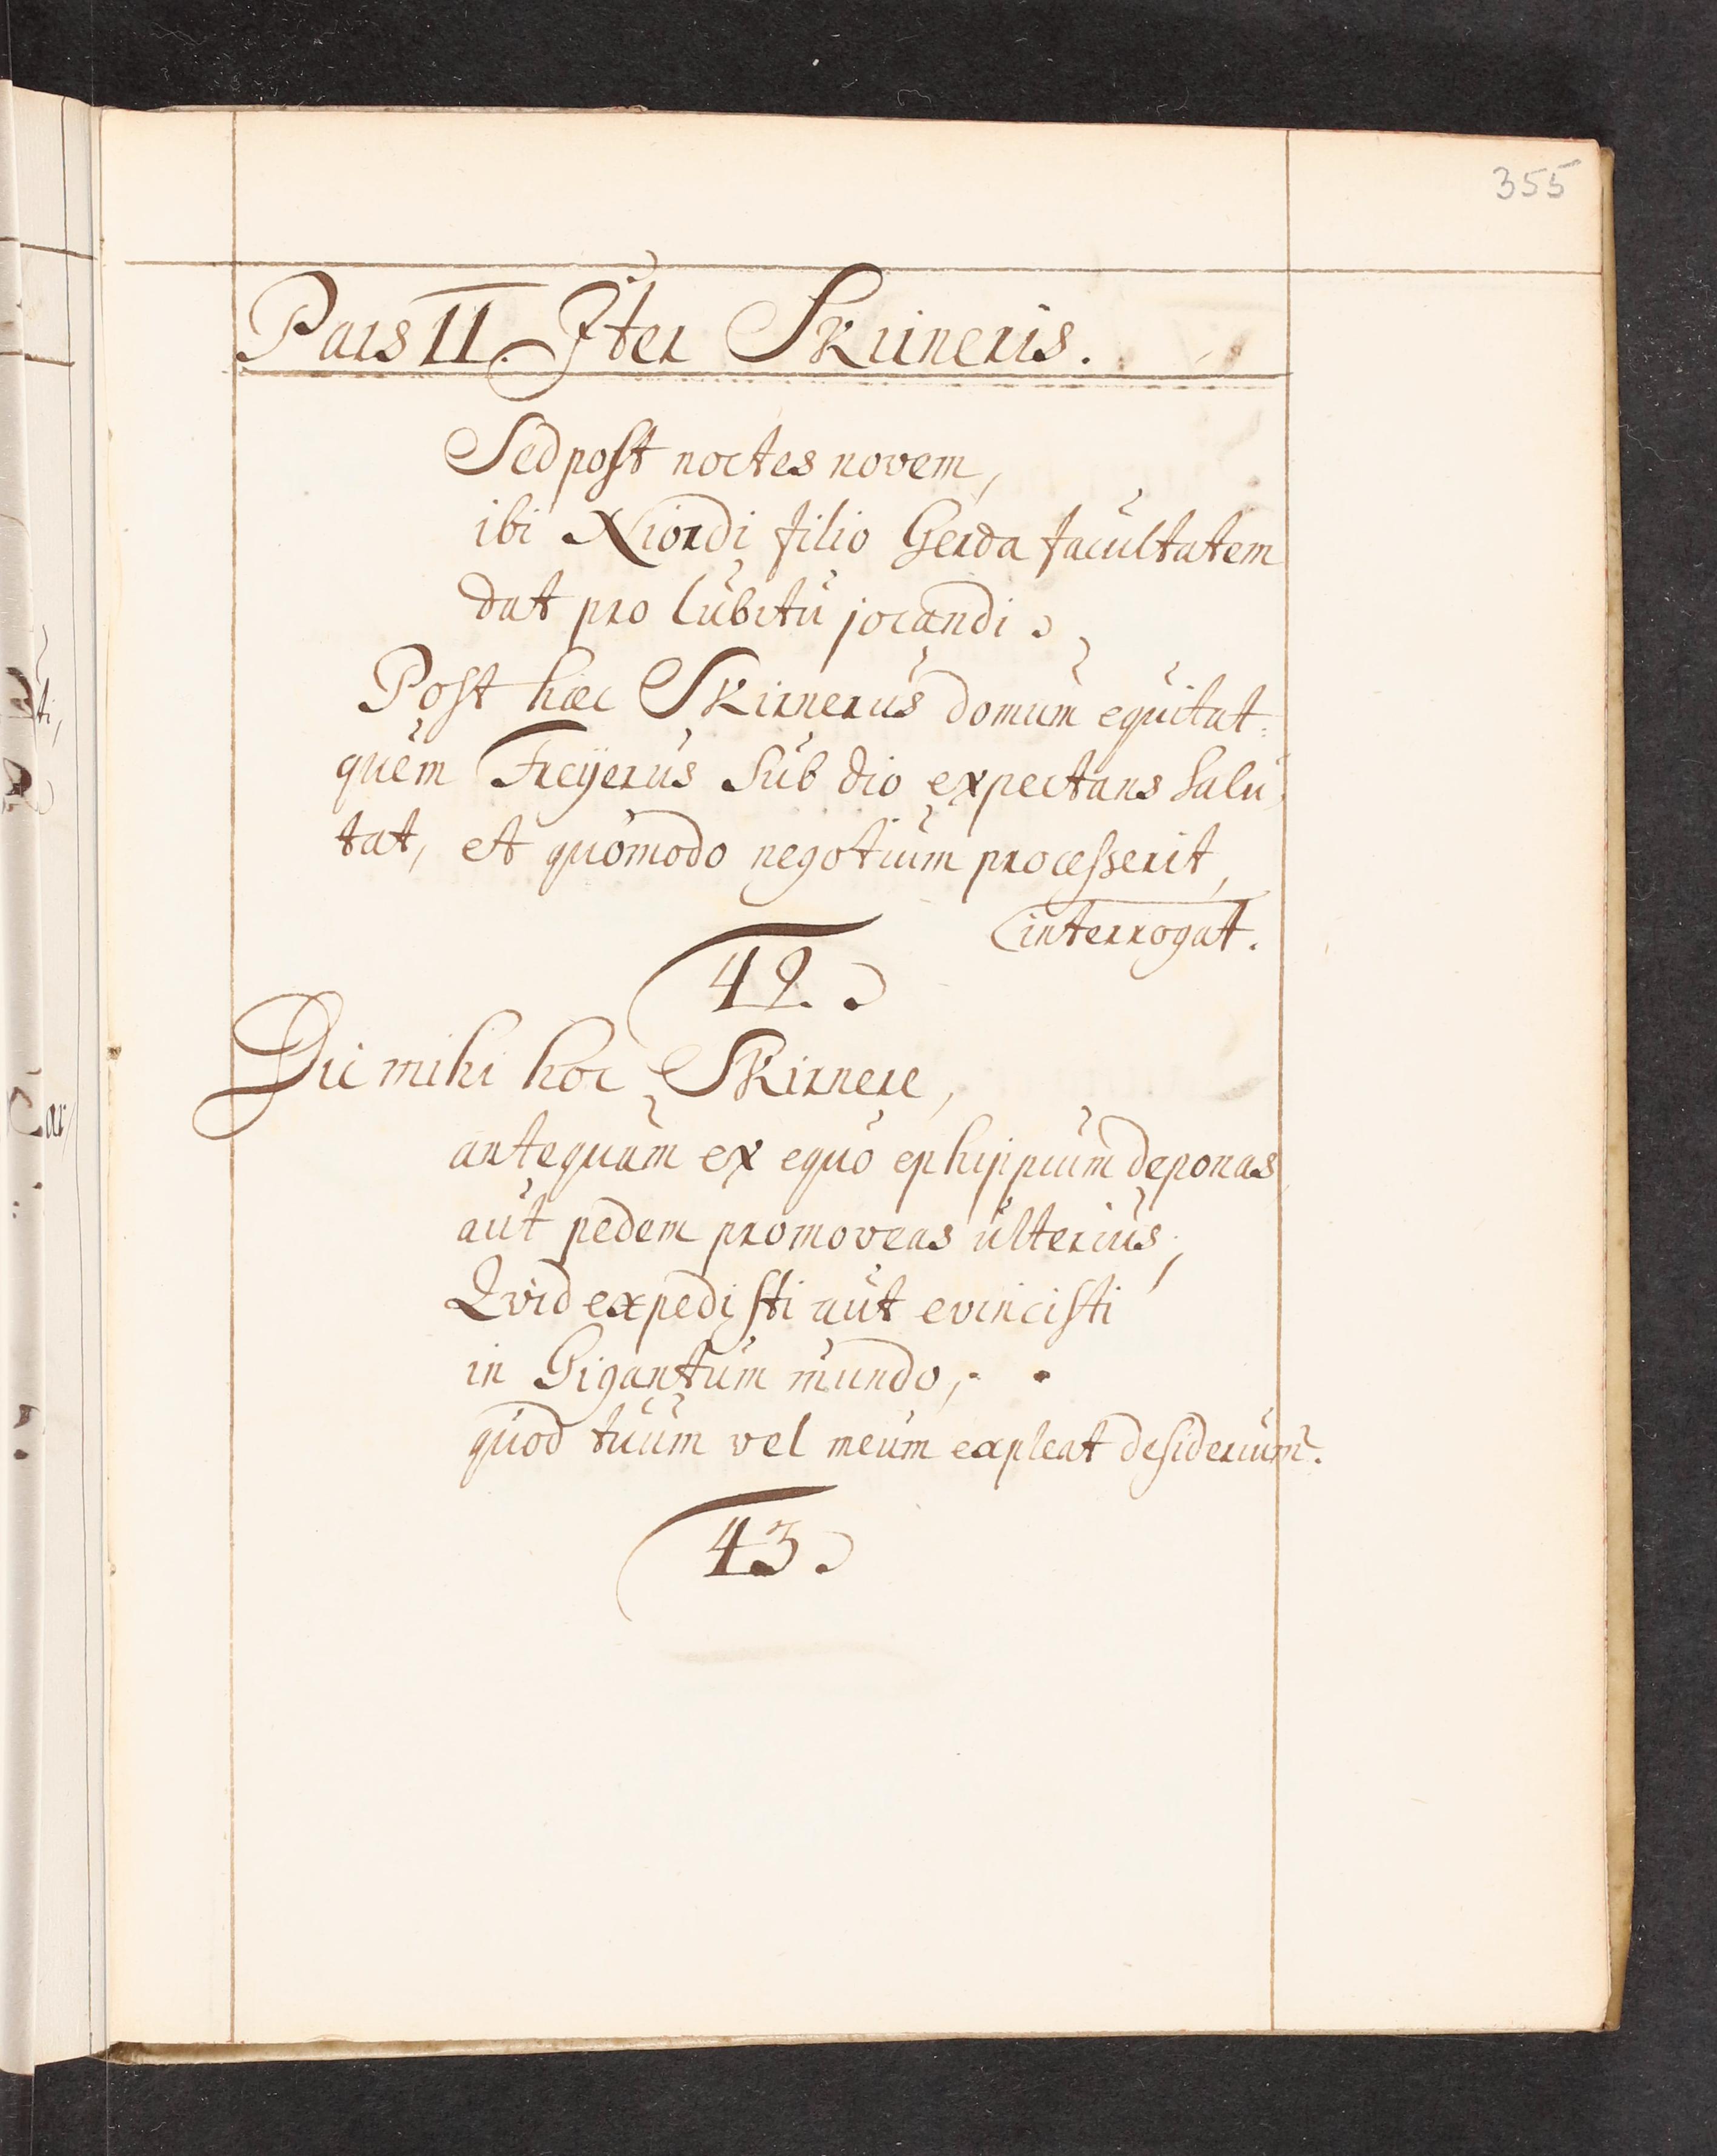 355
Pars II. Iter Skirneris.
Sed post noctes novem,
ibi Niordi filio Gerda facultatem
dat pro lubitu jocandi.
Post hæc Skirnerus domum equitat.
quem Freyerus sub dio expectans salu
tat, et quomodo negotium processerit,
interrogat.
42.
Dic mihi hoc Skirnere,
antequam ex equo ephippium deponas
aut pedem promoveas ulterius;
Qvid expedisti aut evincisti
in Gigantum mundo,
quod tuum vel meum expleat desiderium.
43.